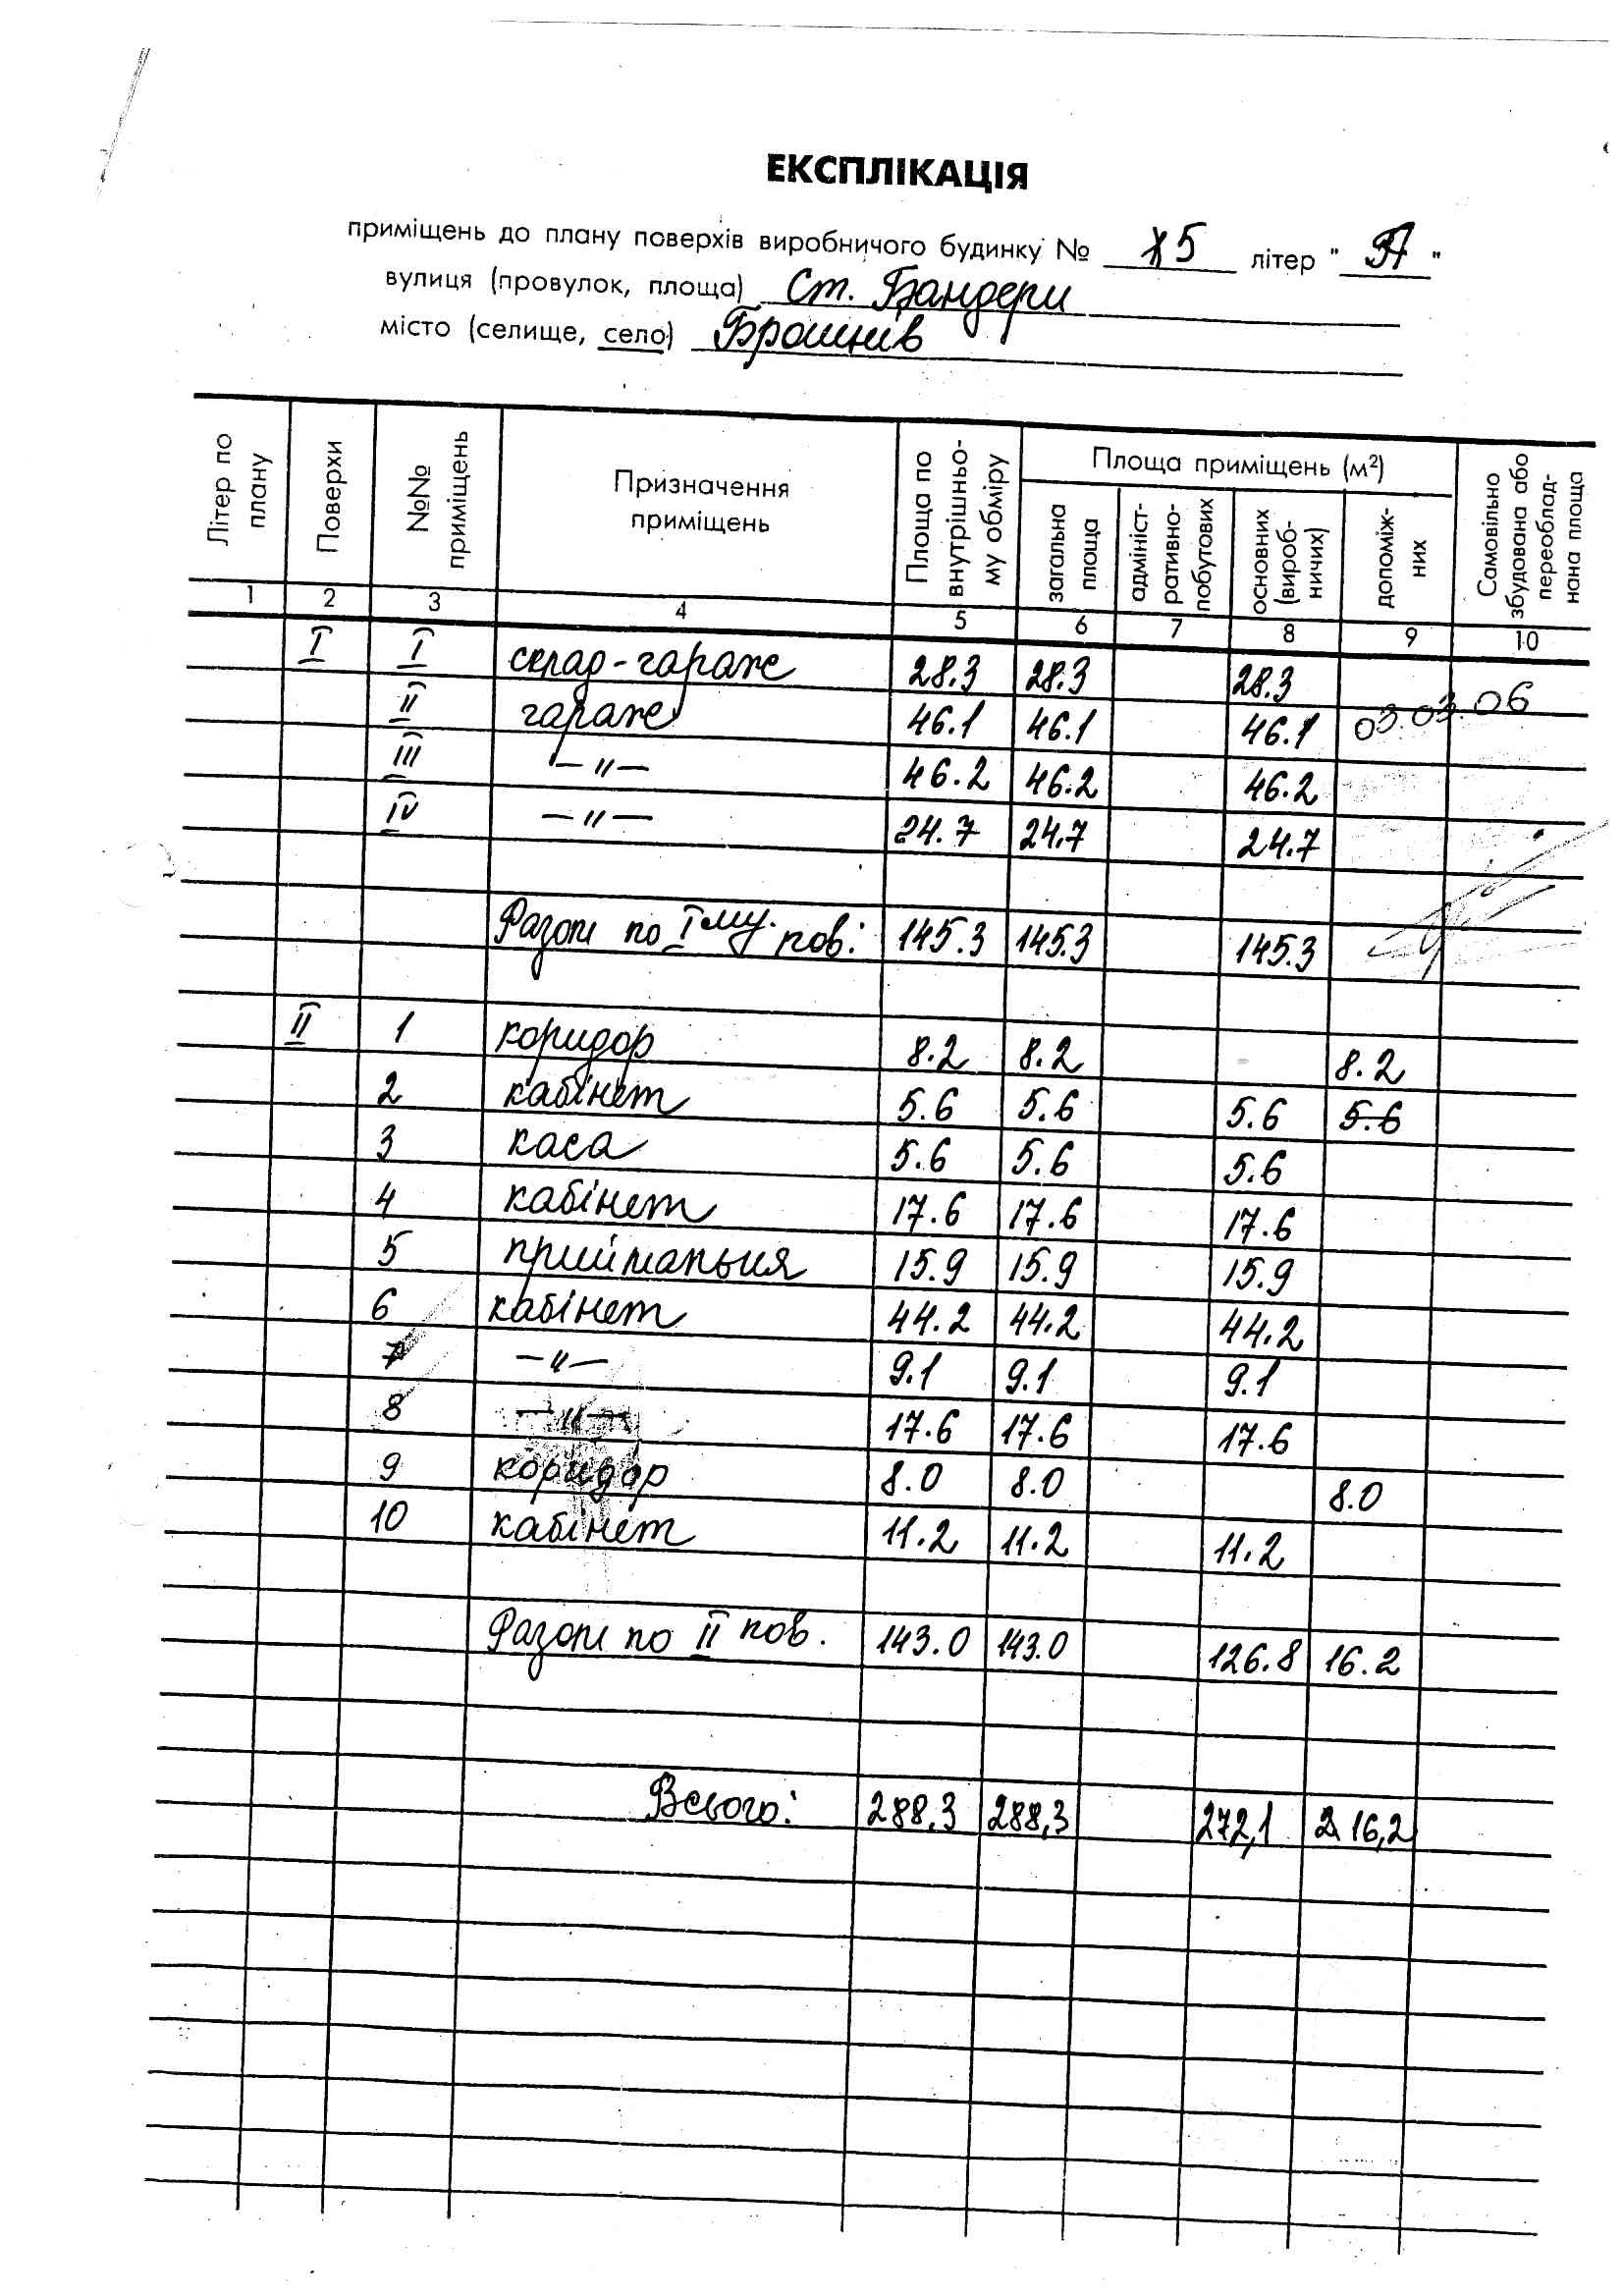 ЕКСПЛІКАЦІЯ
приміщень до плану поверхів виробничого будинку № 5 літер " "
вулиця (провулок, площа) Ст. Бандери
місто (селище, село) Брошнів
Літер по плану Поверхи №№ приміщень Призначення приміщень Площа по внутрішньо-му обміру Площа приміщень (м²) Самовільно збудована або переоблад-нана площа
загальна площа адмініст-ративно-побутових основних (вироб-ничих) допоміж-них
1 2 3 4 5 6 7 8 9 10
I I склад-гараж 28.3 28.3 28.3
II гараж 46.1 46.1 46.1 03.03.06
III —"— 46.2 46.2 46.2
IV —"— 24.7 24.7 24.7
Разом по Iму. пов: 145.3 145.3 145.3
II 1 коридор 8.2 8.2 8.2
2 кабінет 5.6 5.6 5.6 5.6
3 каса 5.6 5.6 5.6
4 кабінет 17.6 17.6 17.6
5 приймальня 15.9 15.9 15.9
6 кабінет 44.2 44.2 44.2
7 —"— 9.1 9.1 9.1
8 —"— 17.6 17.6 17.6
9 коридор 8.0 8.0 8.0
10 кабінет 11.2 11.2 11.2
Разом по II пов. 143.0 143.0 126.8 16.2
Всього: 288,3 288,3 272,1 16,2